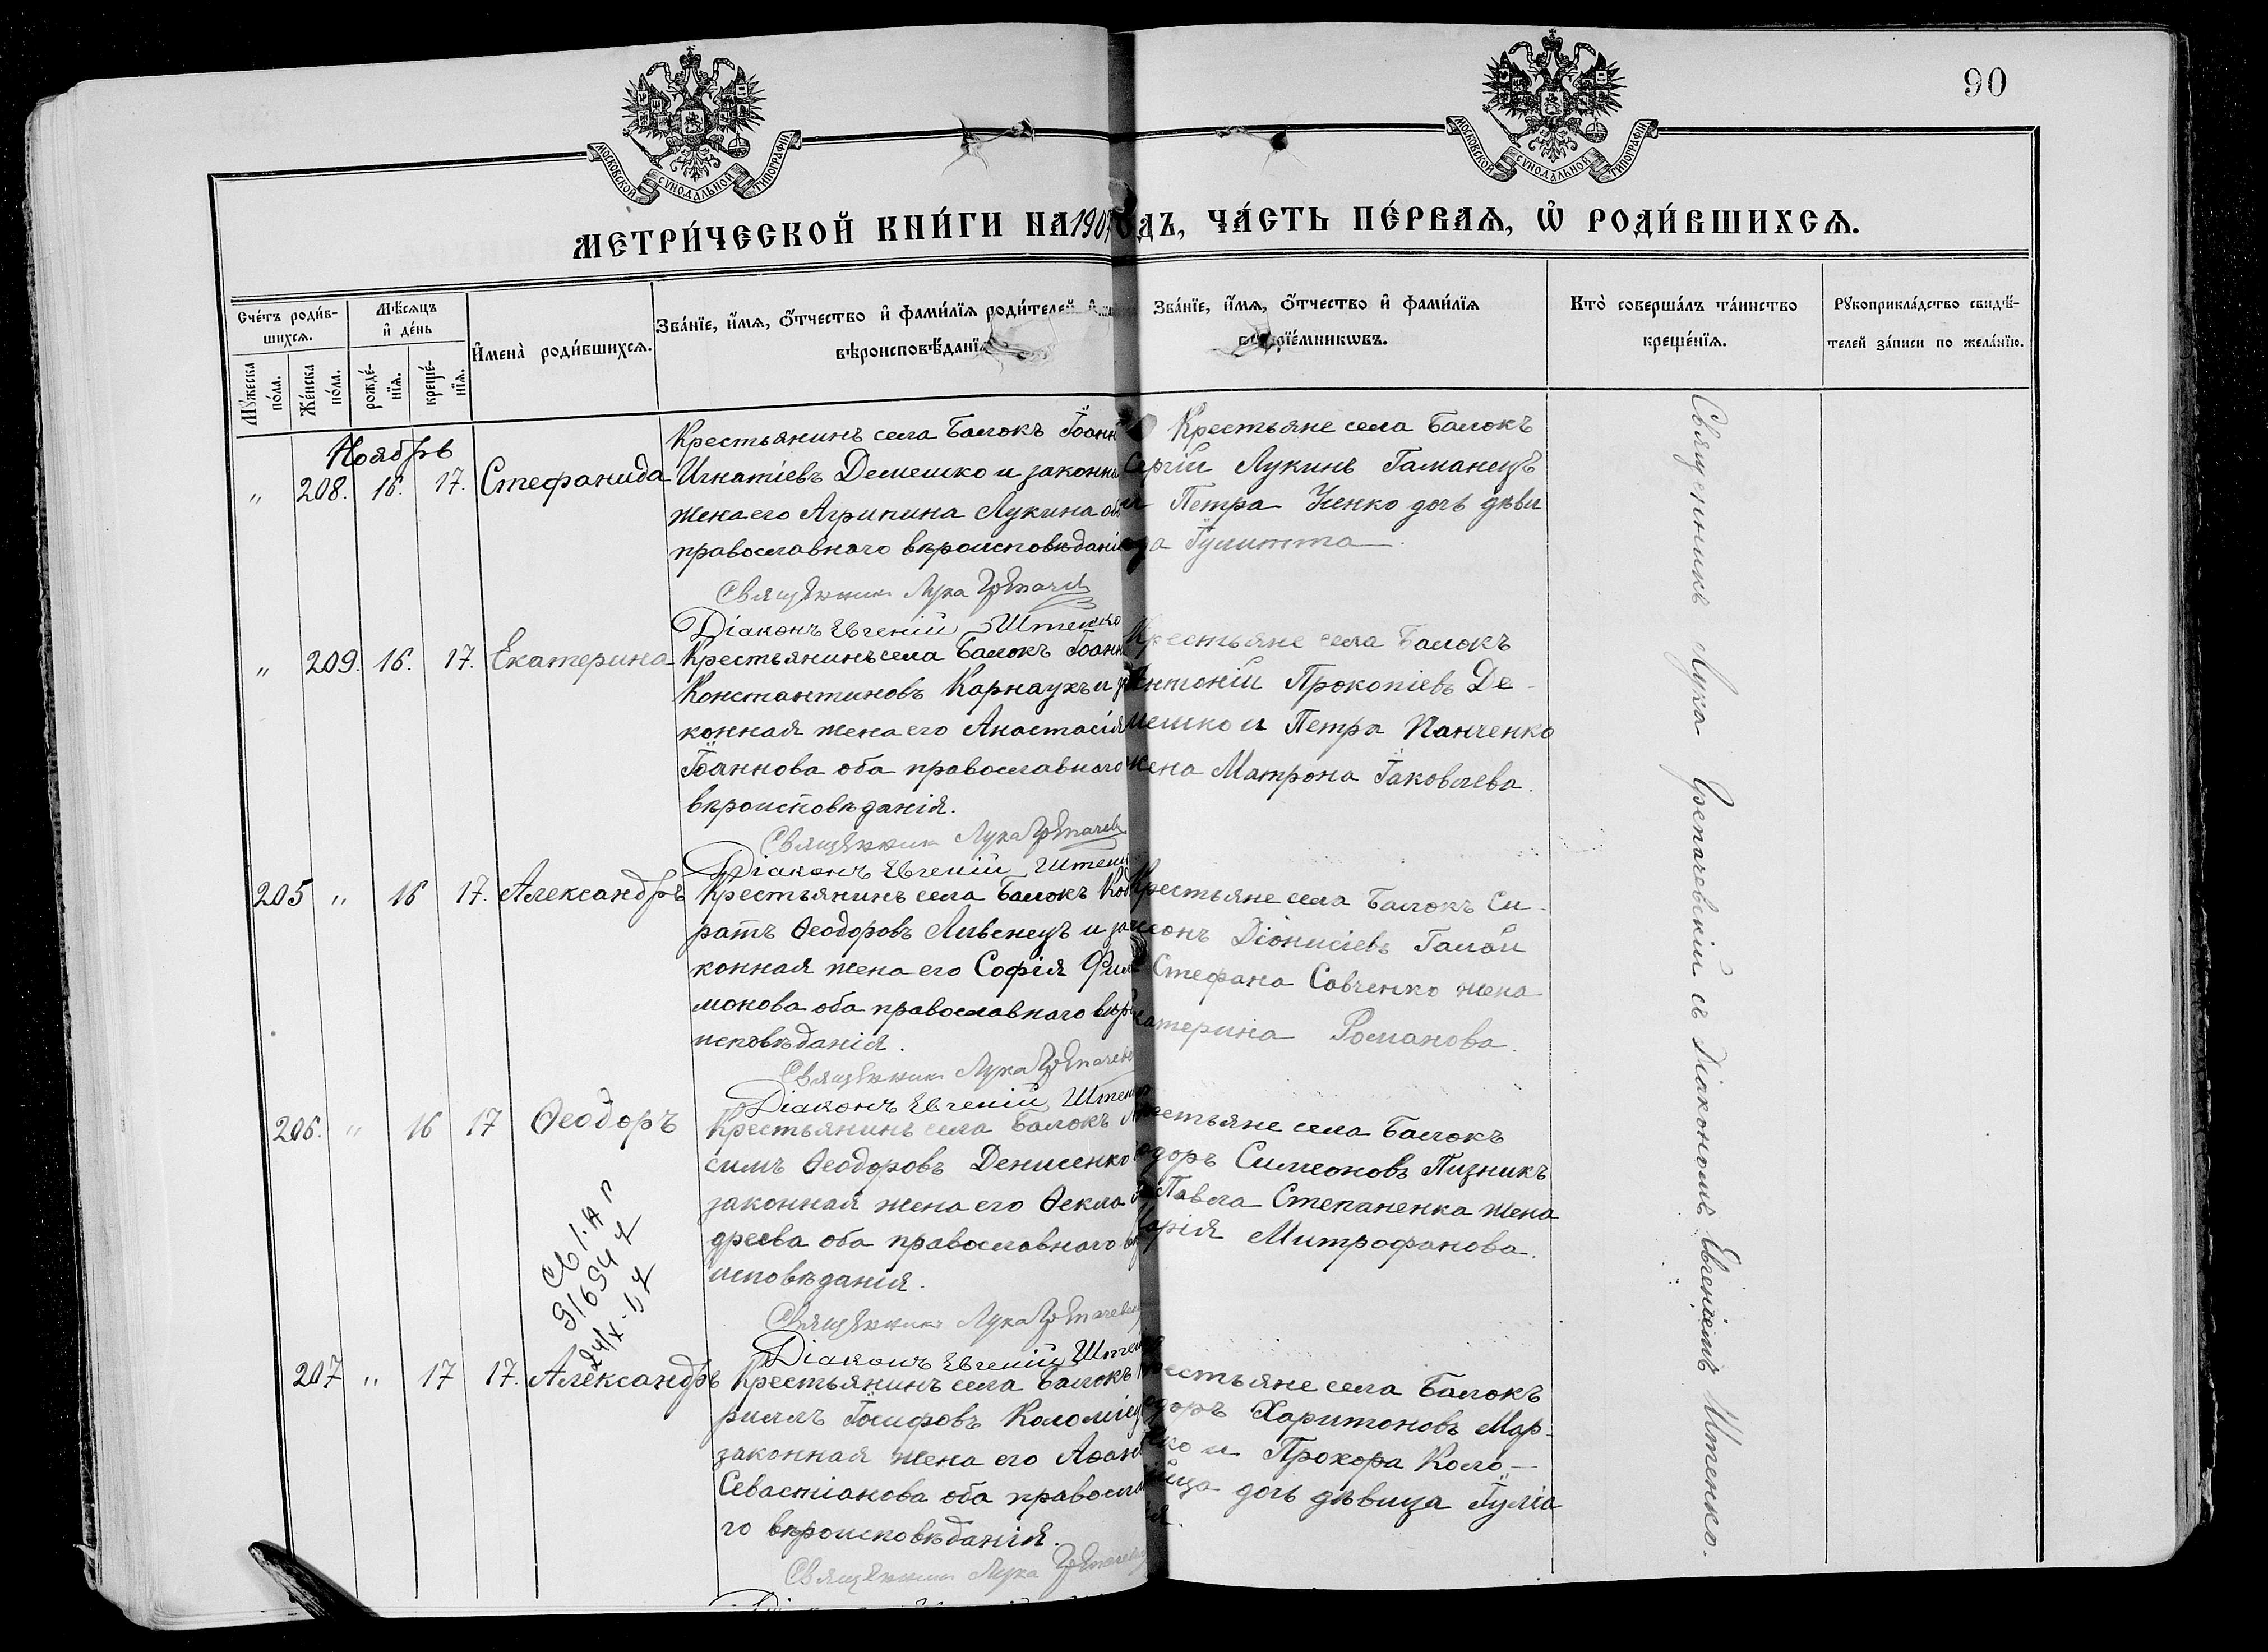 90
МОСКОВСКОЙ СѴНОДАЛЬНОЙ ТИПОГРАФІИ
МОСКОВСКОЙ СѴНОДАЛЬНОЙ ТИПОГРАФІИ
МЕТРИ́ЧЕСКОЙ КНИ́ГИ НА 1907 ГОДЪ, ЧА́СТЬ ПЕ́РВАѦ, Ѡ РОДИ́ВШИХСѦ.
Сче́тъ роди́в-
шихсѧ.
Мꙋ́жеска по́ла.
Же́нска по́ла.
Мѣ́сѧцъ и҆ де́нь
рожде́-нїѧ.
креще́-нїѧ.
И҆мена̀ роди́вшихсѧ.
Зва́нїе, и҆́мѧ, ѻ҆́тчество и҆ фами́лїѧ роди́телей
вѣроисповѣ́данїѧ
Зва́нїе, и҆́мѧ, ѻ҆́тчество и҆ фами́лїѧ
воспрїе́мникѡвъ.
Кто̀ соверша́лъ та́инство
креще́нїѧ.
Рꙋкоприкла́дство свидѣ́-
телей за́писи по жела́нїю.
Ноябрь
" 208. 16. 17. Стефанида
Крестьянинъ села Балокъ Іоаннъ
Игнатіевъ Демешко и законна
жена его Агрипина Лукина оба
православнаго вѣроисповѣданія
Священникъ Лука
Діаконъ Евгеній Штенко
Крестьяне села Балокъ
Сергій Лукинъ Гаманецъ
и Петра Ненко дочь дѣви
ца Іулитта.
" 209. 16. 17. Екатерина
Крестьянинъ села Балокъ Іоаннъ
Константиновъ Карнаухъ и за
конная жена его Анастасія
Іоаннова оба православнаго
вѣроисповѣданія.
Священникъ Лука
Діаконъ Евгеній Штенко
Крестьяне села Балокъ
Антоній Прокопіевъ Де-
мешко и Петра Панченко
жена Матрона Іаковлева.
205 " 16 17. Александръ
Крестьянинъ села Балокъ Код
ратъ Ѳеодоровъ Ливенецъ и за
конная жена его Софія Фили
монова оба православнаго вѣро
исповѣданія.
Священникъ Лука
Діаконъ Евгеній Штенко
Крестьяне села Балокъ Си-
меонъ Діонисіевъ Галай
Стефана Савченко жена
Екатерина Романова.
206. " 16 17 Ѳеодоръ
Крестьянинъ села Балокъ
симъ Ѳеодоровъ Денисенко
законная жена его Ѳекла Ан
дреева оба православнаго вѣро
исповѣданія.
Священникъ Лука
Діаконъ Евгеній Штенко
Крестьяне села Балокъ
Ѳеодоръ Симеоновъ Пизникъ
и Павла Степаненка жена
Марія Митрофанова.
207 " 17 17. Александръ
Крестьянинъ села Балокъ
риллъ Іосифовъ Коломіецъ
законная жена его Аѳан
Севастіанова оба православна
го вѣроисповѣданія.
Священникъ Лука
Крестьяне села Балокъ
Ѳеодоръ Харитоновъ Мар-
ко и Прохора Коло-
мійца дочь дѣвица Іуліа
нія.
Священникъ Лука Грепачевскій съ Діакономъ Евгеніемъ Штенко.